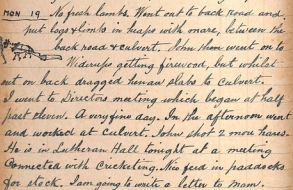 MON 19 No fresh lambs. Went out to back road and
put logs & limbs in heaps with mare, between the
back road & culvert. John then went on to
getting firewood, but whilst
out on back dragged hewn slabs to culvert.
I went to Directors meeting which began at half
past eleven. A very fine day. In the afternoon went
and worked at culvert. John shot 2 more hares.
He is in Lutheran Hall tonight at a meeting
Connected with Cricketing. Nice feed in paddocks
for stock. I am going to write a letter to Mam.